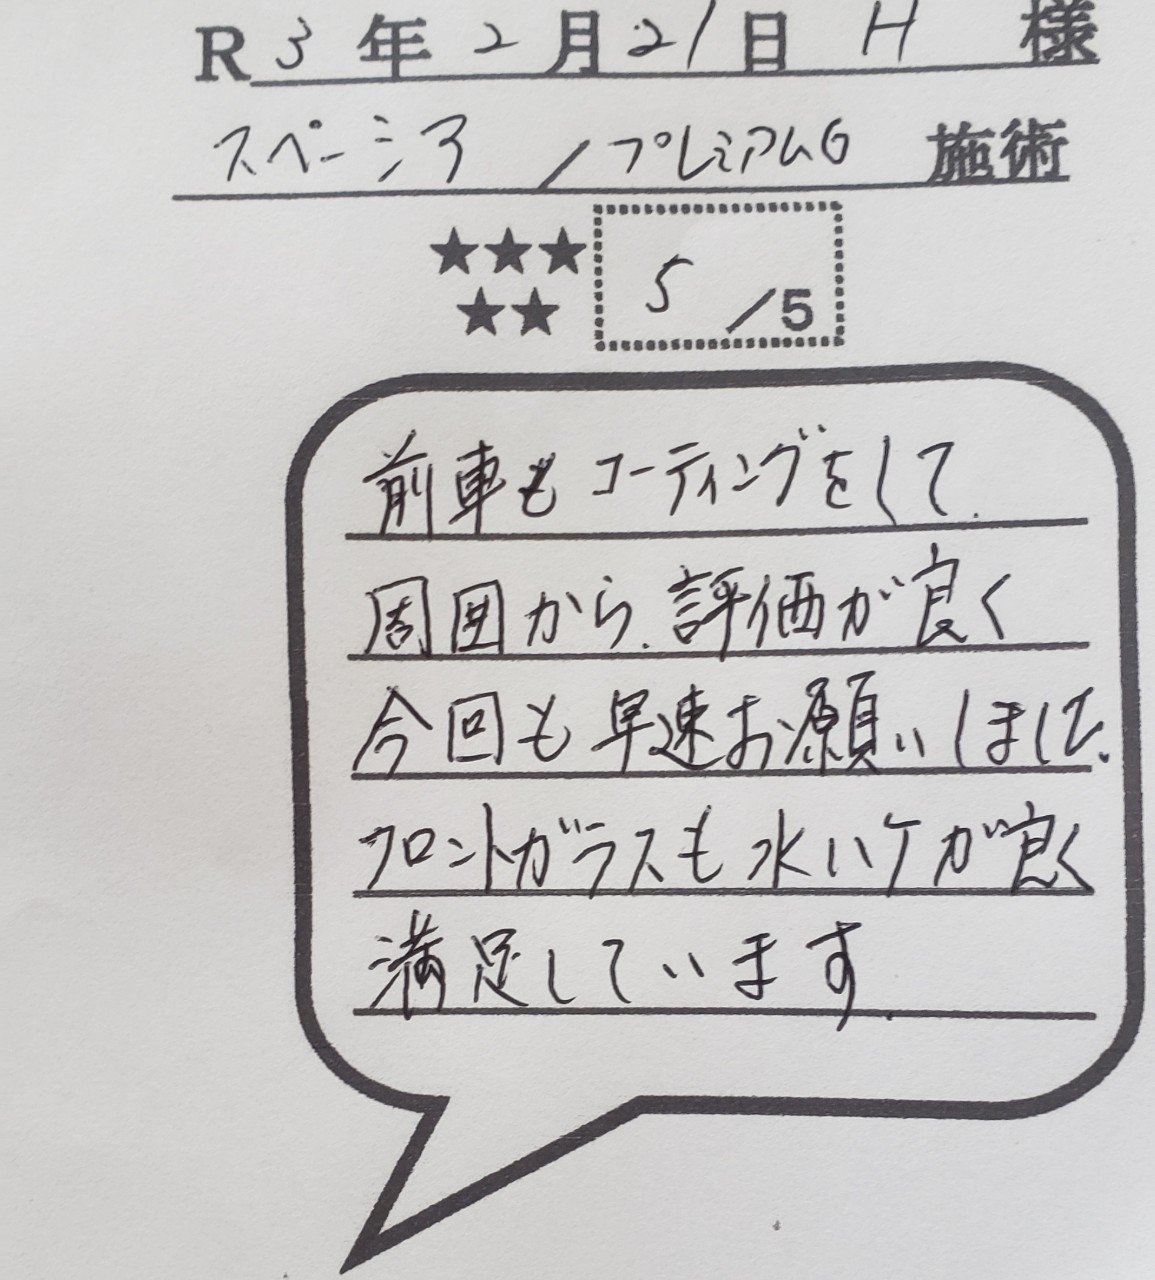 R3年2月21日 H 様
スペーシア/プレミアムG 施術
★★★
★★
5/5
前車もコーティングをして.
周囲から.評価が良く
今回も早速お願いしました.
フロントガラスも水ハケが良く
満足しています.